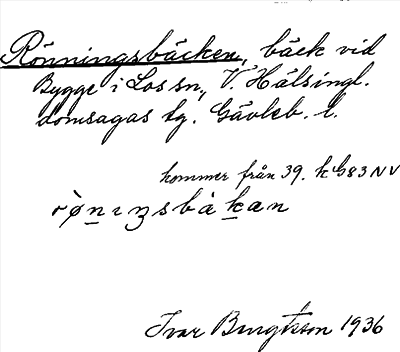 Rönningsbäcken, bäck vid
Bygge i Los sn, V. Hälsingl.
domsagas tg. Gävleb. l.
kommer från 39. k 983 NV
Ivar Bengtsson 1936